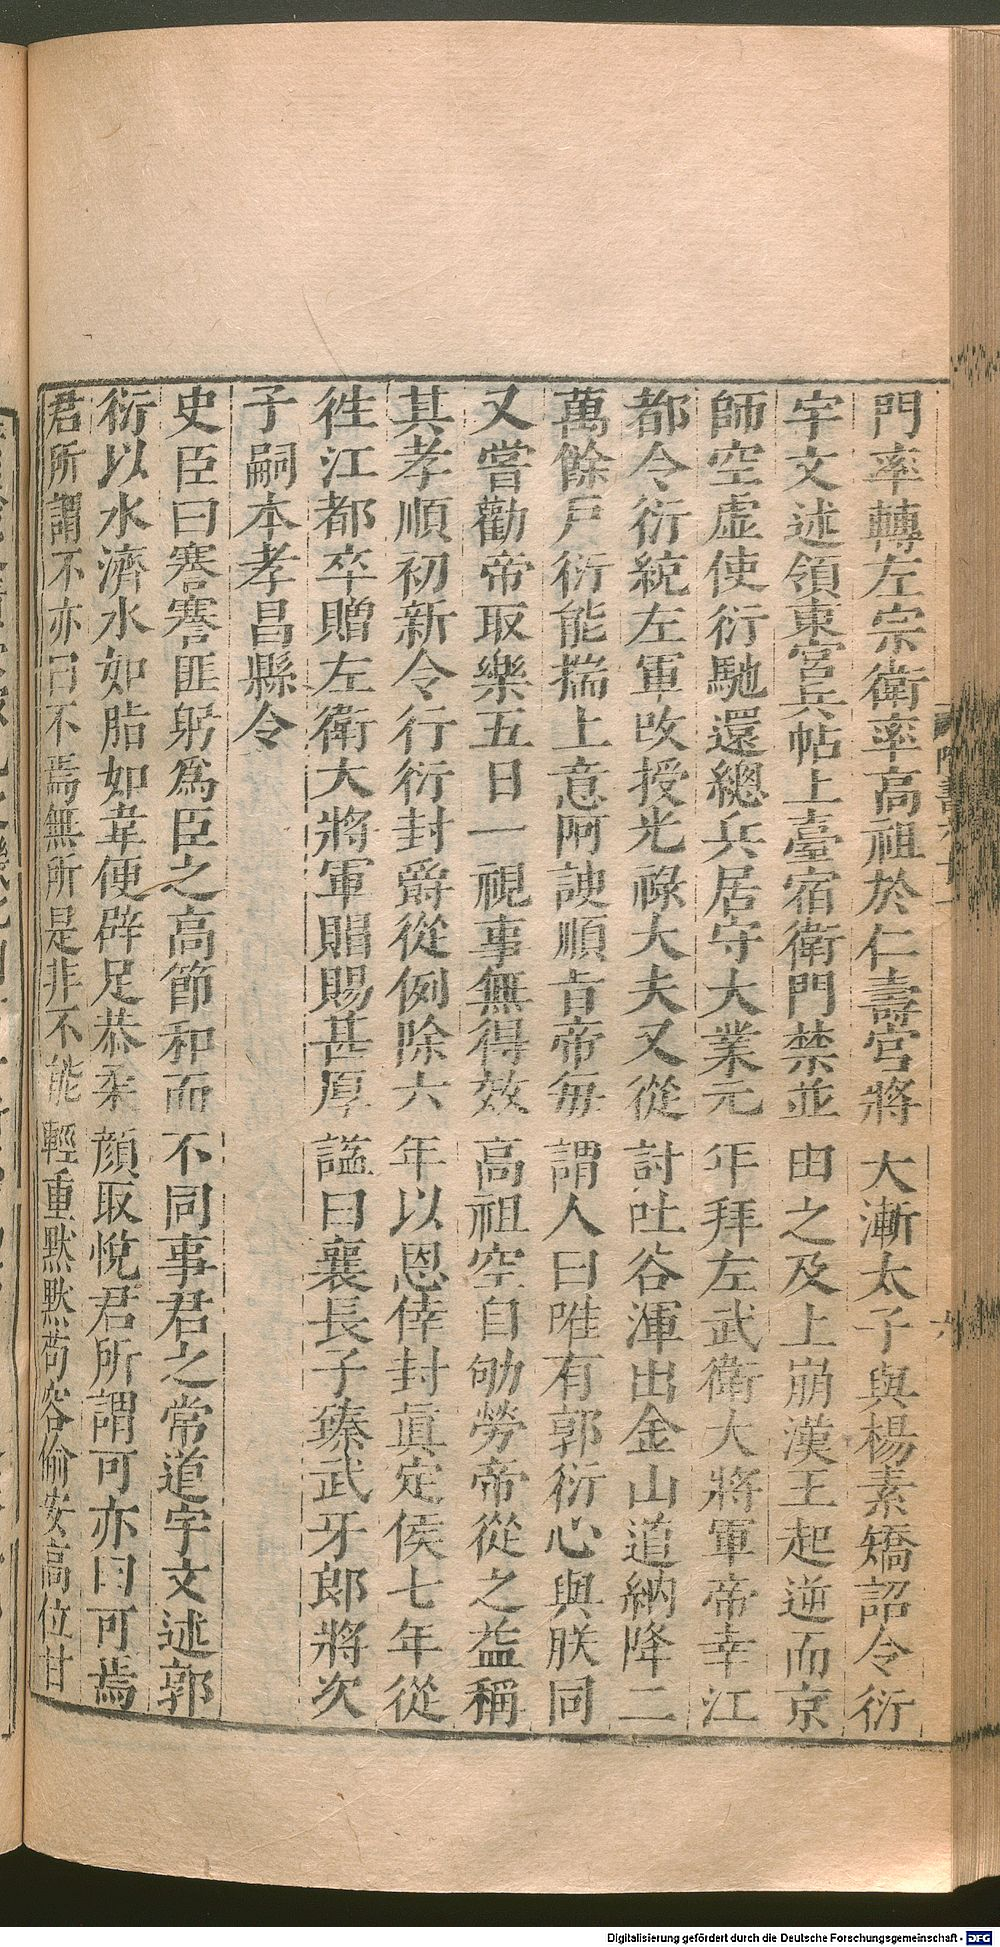 門率轉左宗衛率高祖於仁壽宮將大漸太子與楊素矯詔令衍
宇文述領東宮兵帖上臺宿衛門禁並由之及上崩漢王起逆而京
師空虛使衍馳還總兵居守大業元年拜左武衛大將軍帝幸江
都令衍統左軍改授光祿大夫又從討吐谷渾出金山道納降二
萬餘戸衍能揣上意阿諛順旨帝每謂人曰唯有郭衍心與朕同
又嘗勸帝取樂五日一視事無得效高祖空自劬勞帝從之益稱
其孝順初新令行衍封爵從例除六年以恩倖封眞定侯七年從
徃江都卒贈左衛大將軍賵賜甚厚謚曰襄長子臻武牙郎將次
子嗣本孝昌縣令
史臣曰謇謇匪躬爲臣之高節和而不同事君之常道宇文述郭
衍以水濟水如脂如韋便辟足恭柔顏取悅君所謂可亦曰可焉
君所謂不亦曰不焉無所是非不能輕重默默苟容偷安高位甘
Digitalisierung gefördert durch die Deutsche Forschungsgemeinschaft - DFG